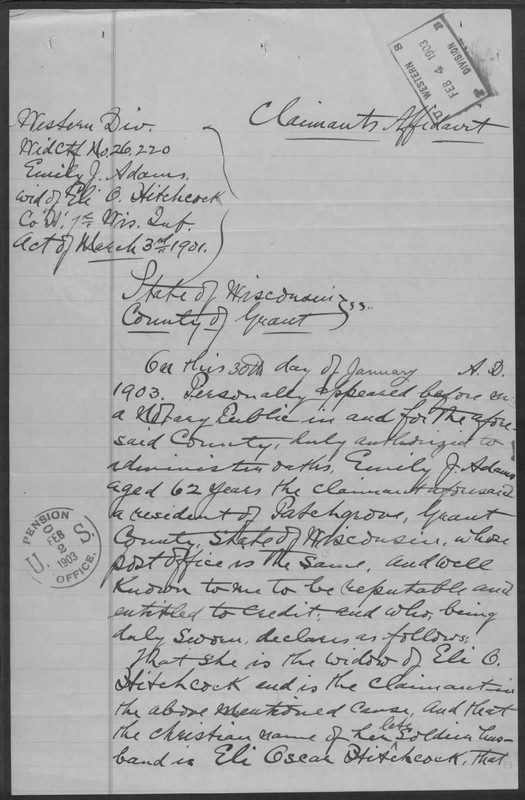 WESTERN
FEB 4 1903
DIVISION
Claimants Affidavit
Western Div.
Wid Ctf No. 26,220
Emily J. Adams,
wid of Eli O. Hitchcock
Co "H" 7th Wis. Inf.
Act of March 3rd 1901.
State of Wisconsin
County of Grant } ss..
On this 30th day of January A.D.
1903. Personally appeared before me
a Notary Public in and for the afore-
said County, duly authorized to
administer oaths, Emily J. Adams
aged 62 years the claimant aforesaid
a resident of Patchgrove, Grant
County, State of Wisconsin, whose
post office is the same, and well
known to me to be reputable and
entitled to credit, and who, being
duly sworn, declares as follows;
That she is the widow of Eli O.
Hitchcock and is the claimant in
the above mentioned cause, and that
the christian name of her late Soldier hus-
band is Eli Oscar Hitchcock, that
U.S. PENSION OFFICE.
FEB 2 1903